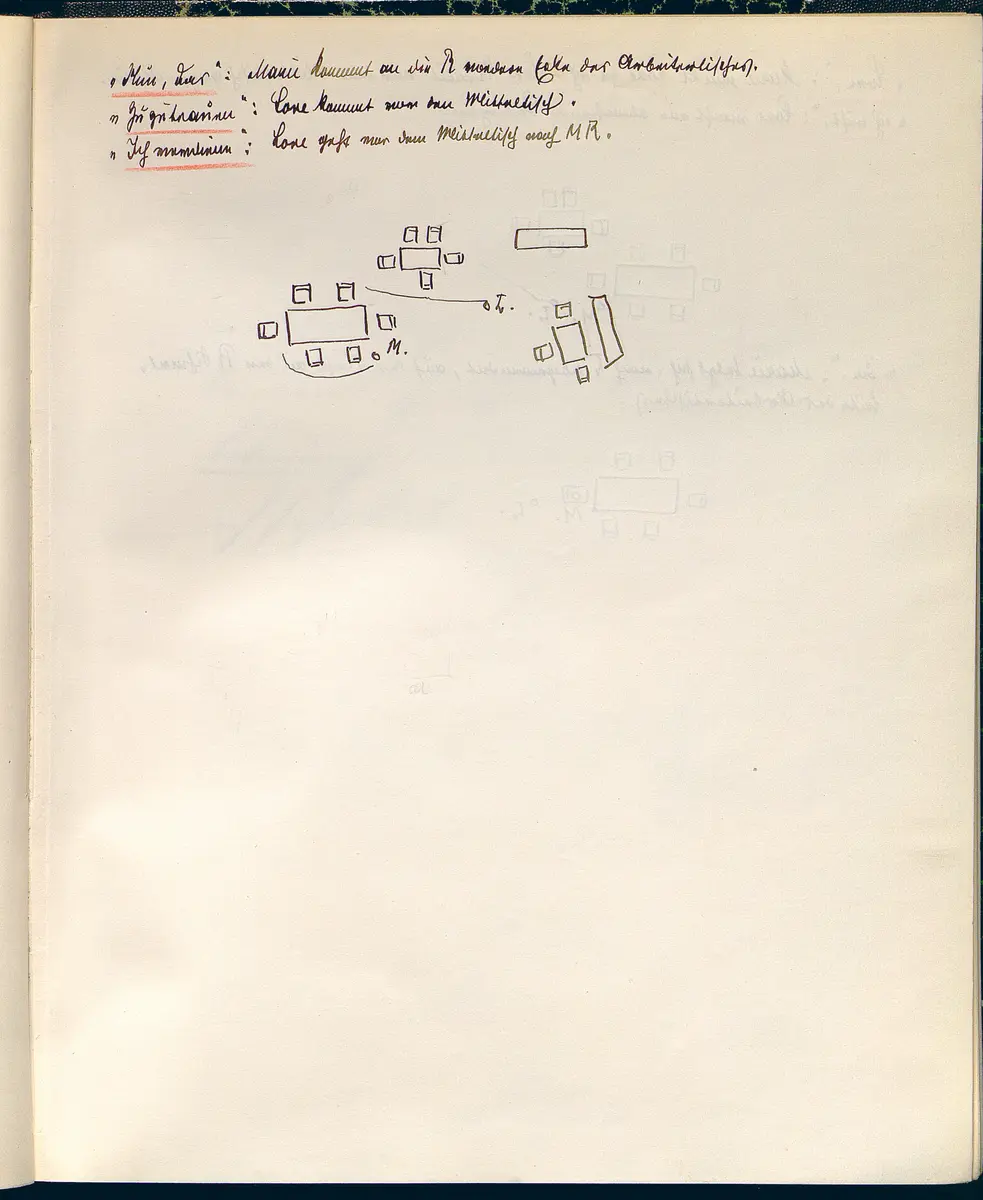 „Nun, das“: Marie kommt an die R vordere Ecke des Arbeitertisches.
„Zuzutrauen“: Lore kommt vor den Mitteltisch.
„Ich verdiene“: Lore geht vor dem Mitteltisch nach M R.
L.
M.